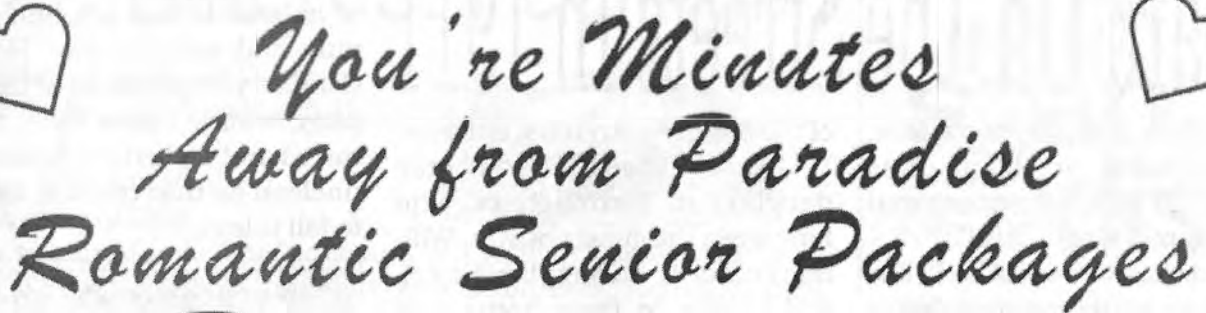 You're Minutes
Away from Paradise
Romantic Senior Packages